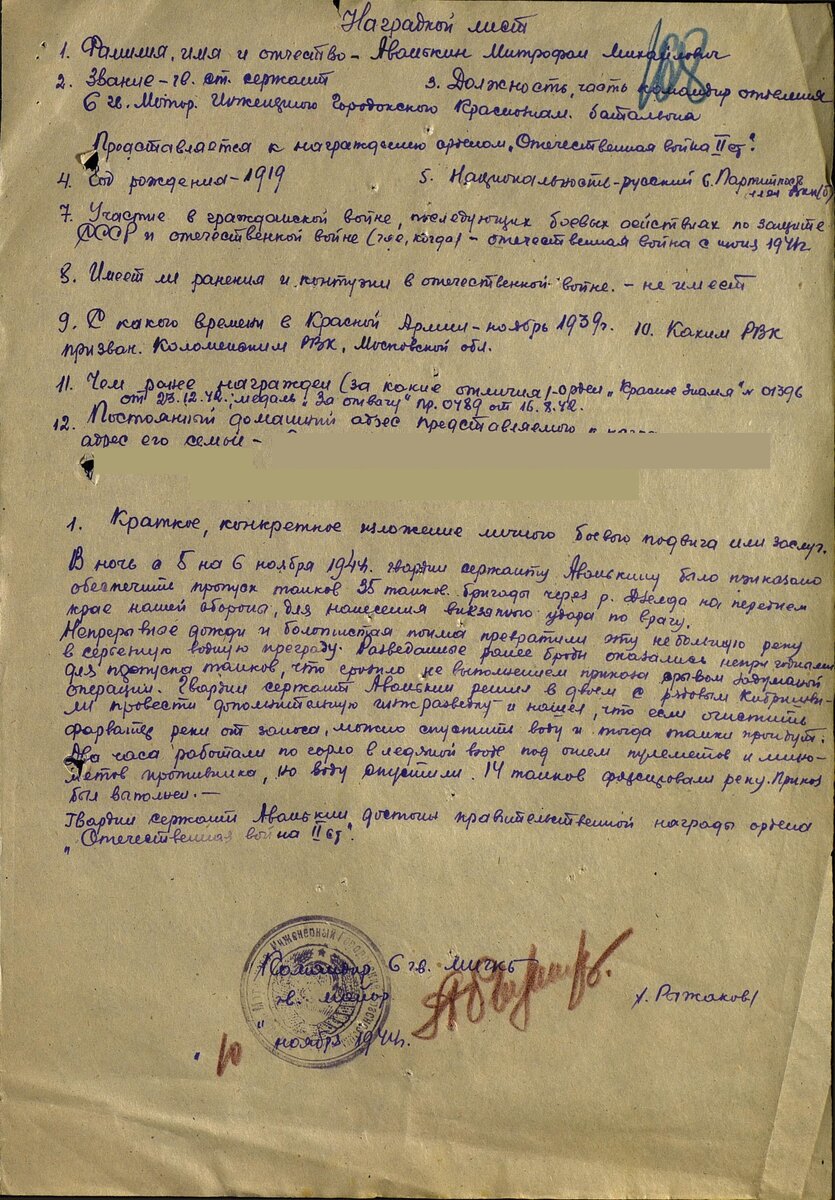 Наградной лист
108
1. Фамилия, имя и отчество – Аванькин Митрофан Михайлович
2. Звание – гв. ст. сержант 3. Должность, часть командир отделения
6 гв. Мотор. Инженерного Городокского Краснознам. батальона
Представляется к награждению орденом „Отечественная война II ст".
4. Год рождения – 1919 5. Национальность – русский 6. Партийность
член ВКП(б)
7. Участие в гражданской войне, последующих боевых действиях по защите
СССР и отечественной войне (где, когда) – отечественная война с июня 1941г.
8. Имеет ли ранения и контузии в отечественной войне. – не имеет
9. С какого времени в Красной Армии – ноябрь 1939г. 10. Каким РВК
призван. Коломенским РВК, Московской обл.
11. Чем ранее награжден (за какие отличия) – орден „Красное Знамя" № 01396
от 23.12.42., медаль „За отвагу" пр. 0489 от 16.8.42.
12. Постоянный домашний адрес представляемого
адрес его семьи –
1. Краткое, конкретное изложение личного боевого подвига или заслуг.
В ночь с 5 на 6 ноября 1944г. гвардии сержанту Аванькину было приказано
обеспечить пропуск танков 35 танков. бригады через р. Дзелда на переднем
крае нашей обороны, для нанесения внезапного удара по врагу.
Непрерывные дожди и болотистая пойма превратили эту небольшую реку
в серьезную водную преграду. Разведанные ранее броды оказались непригодными
для пропуска танков, что грозило не выполнением приказа срывом задуманой
операции. Гвардии сержант Аванькин решил в двоем с рядовым
ли провести дополнительную инж. разведку и нашел, что если очистить
фарватер реки от заноса, можно спустить воду и тогда танки пройдут.
Два часа работали по горло в ледяной воде под огнем пулеметов и мино-
метов противника, но воду спустили. 14 танков форсировали реку. Приказ
был выполнен. –
Гвардии сержант Аванькин достоин правительственной награды ордена
„Отечественная война II ст".
Командир 6 гв. мигкб
гв. майор /Рыжаков/
„10" ноября 1944г.